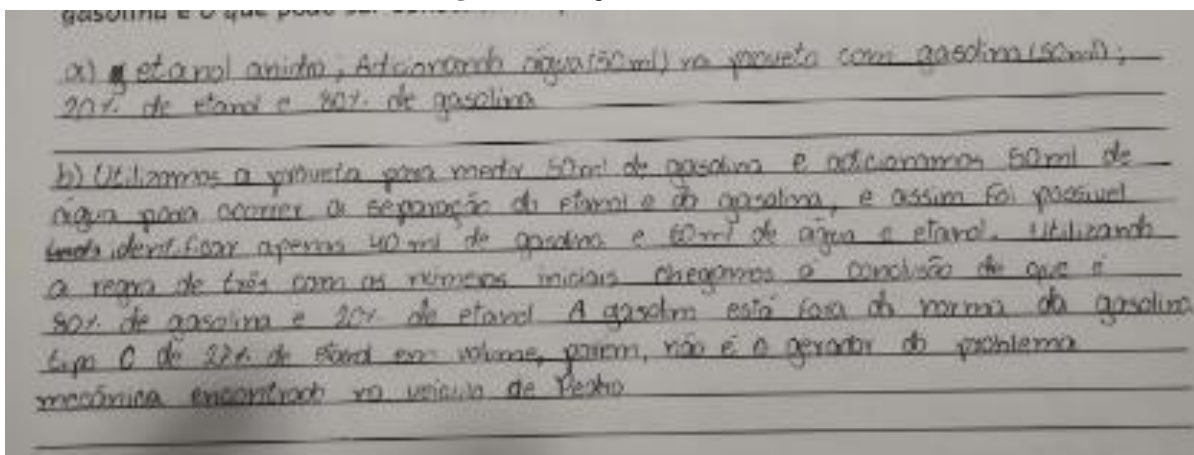 gasolina e o que pode ser
a) etanol anidro; Adicionando água (50ml) na proveta com gasolina (50ml);
20% de etanol e 80% de gasolina
b) Utilizamos a proveta para medir 50ml de gasolina e adicionamos 50ml de
água para ocorrer a separação do etanol e da gasolina, e assim foi possível
identificar apenas 40 ml de gasolina e 60ml de água e etanol. Utilizando
a regra de três com os números iniciais chegamos a conclusão de que é
80% de gasolina e 20% de etanol A gasolina está fora da norma da gasolina
tipo C de 27% de etanol em volume, porém, não é o gerador do problema
mecânica encontrado no veículo de Pedro